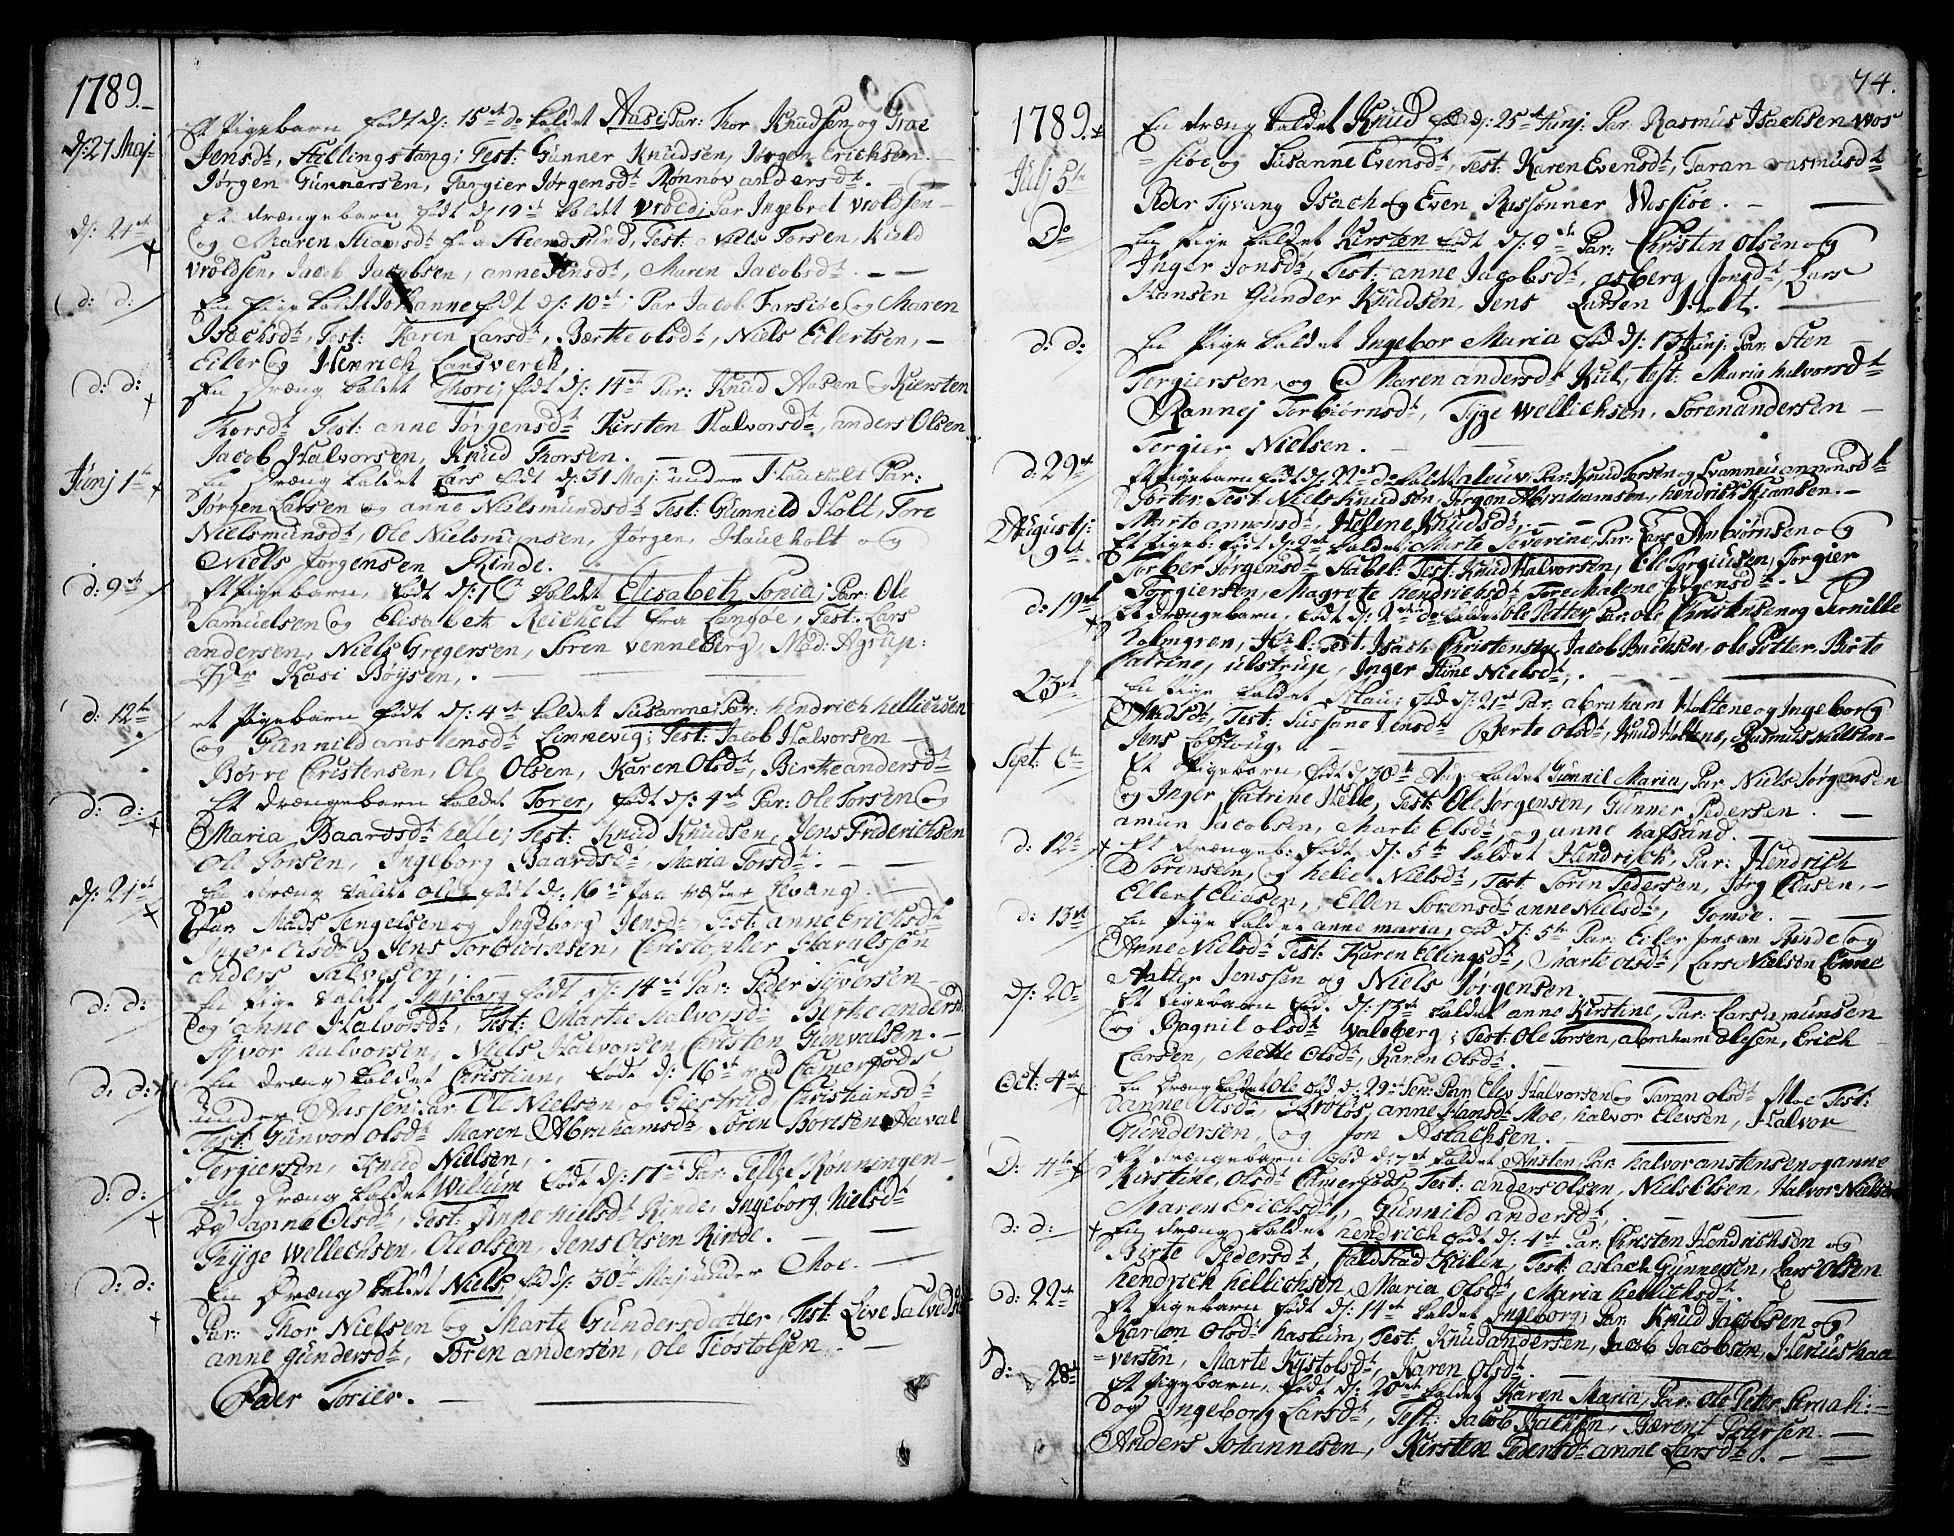 1789.
d: 21 Maj
Et Pigebarn født d: 15de do kaldet Aase; Par: Thor Knudsen og Groe
Jensdt, Stillingstang; Test: Gunner Knudsen, Jørgen Erichsen
Jørgen Gunnersen, Targier Jørgensdt Rønnov andersdt.
d: 24de
Et drængebarn født d: 19de kaldet Vrold; Par Ingebret Vroldsen
og Maren Stiansdt fra Steendsund, Test: Niels Torsen, Kield
Vroldsen, Jacob Jacobsen, anne Jensdt, Maren Jacobsdt.
d: d:
En pige kaldt Johanne født d: 10de; Par Jacob Farsiøe og Maren
Isachsdt, Test: Karen Larsdt, Børthe olsdt, Niels Eilertsen,
Eiler og Henrich Langverch,
d: d:
En Dræng kaldet Thore; født d: 14de Par: Knud Aasen og Kiersten
Thorsdt Test: anne Jorgensdt Kirsten Halvorsdt, anders Olsen
Jacob Halvorsen, Knud Thorsen.
Junj 1te
En Dræng kaldet Lars født d: 31 Maj under Haueholt Par:
Jørgen Larsen og anne Nielsmundsdt Test: Gunnild Holt, Tore
Nielsmunsdt, Ole Nielsmunsen, Jørgen Haueholt og
Niels Jorgensen Rinde.
d: 9de
Et Pigebarn, født d: 1te kaldet Elisabeth Sopia; Par: Ole
Samuelsen og Elisabeth Reichelt fra Langøe, Test: Lars
andersen, Niels Gregersen, Soren Venneberg, Mad: Agrup:
Jfr Kasi Bøysen,
d: 12te
et Pigebarn født d: 4de kaldet Susanne; Par: hendrich hellieusen
og Gunnild ans Jensdt Linnevig; Test: Jacob Halvorsen
Børre Cristensen, Ole Olsen, Karen Olsdt, Birthe andersdt
d: d:
Et drængebarn kaldet Torer, født d: 4de Par: Ole Torsen og
Maria Baardsdt helle; Test: Knud Knudsen, Jens Friderichsen
Ole Torsen, Ingeborg Baardsdt, Maria Torsdt.
d: 21de
En Dræng kaldet ole født d: 16de paa vester Kvang.
Par Mads Tengelsen og Ingeborg Jensdt, Test: anne Erichsdt
Inger Olsdt, Jens Torbiørnsen, Christopher Haralssen
anders Salvesen,
d: d:
En Pige kaldet Ingeborg født d: 14de Par: Peder Syversen
og anne Halvorsdt, Test: Marthe Halvorsdt Birthe andersdt
Syvor halvorsen, Niels Halvorsen, Christen Gunvalsen.
d: d:
En Dræng kaldet Christian, født d: 16de ved Camerfods
under Aassen; Par: Ole Nielsen, og Giertrud Christiansdt
Test: Gunvor olsdt Maren Abrahamsdt, Søren Boresen Haval
Tergiersen, Knud Nielsen,
d: d:
En Dræng kaldet Wilhum født d: 17de Par: Tellef Rønningen
og anne Olsdt, Test: Anne nielsdt Rinde, Ingeborg Nielsdt
Thyge Wellechsen, Ole olsen, Jens Olsen Rinde.
d: d:
En Dræng kaldet Niels, fød d: 30te Maj under Moe.
Par: Thor Nielsen og Marte Gundersdatter, Test: Live Salvedsdt
anne gundersdt, Toren andersen, Ole Tiøstolsen
Peder Torier.
74.
1789.
Julj 5te
En dræng kaldet Knud fød d: 25de Junj Par: Rasmus Isachsen Wos
siøe og Susanne Evensdt, Test: Karen Evensdt, Taran rasmusdt
Peder Tyvang Isach og Even Rassønner Wossiøe.
Do
En Pige kaldet Kirsten født d: 9de Par: Christen Olsen og
Inger Jonsdt, Test: anne Jacobsdt, asberg Jonsdt, Lars
Hansen Gunder Knudsen, Jens Larsen Holt.
d: d:
En Pige kaldet Ingebor Maria fød d: 13 Junj Par: Sten
Tergiersen, og Maren andersdt Kul, Test: Maria halvorsdt
Rannej Torbiørnsdt, Tyge Wellichsen, Soren andersen
Tergier Nielsen.
d: 29de
Et Pigebarn født d: 22de do kaldet aleuv, Par: Knud Torsen og Svanneu annonsdt
Porter: Test. Niels Knudsen Jørgen Abrahamsen, hendrich Kiansen.
Marte annonsdt, Helene Knudsdt,
Augustj: 9de
Et Pigeb: født d: 9de kaldet: Marte Severine, Par: Lars Ambiørnsen og
Torber Jørgensdt Habel: Test: Knud Halvorsen, Ole Torgiusen, Torgier
Torgiersen, Magrete hendrichsdt, Tore Malene Jørgensdt.
d: 19de
Et drængebarn, født d: 2den do kaldet ole Petter, Par: ole Christensen og Pernille
Holmgren, Test: Isach Christensen, Jacob Bursen, ole Petter, Birte
Catrine, Ulstrup, Inger Stine Nielsdt,
23de
En Pige kaldet Mlau; fød d: 21de Par: abraham Holtene og Ingeborg
Madsdt, Test: Sussane Jensdt Berte Olsdt, Knud Holtene, Rasmus Nielsen
Jens Løstoug,
Sept: 6te
Et Pigebarn, født d: 30te Aug: kaldet Gunnil Maria, Par Niels Jørgensen
og Inger Catrine Helle, Test: Ole Jørgensen, Gunner Pedersen
amun Jacobsen, Marte Olsdt, og anne hafsand
d: 12te
Et drængeb: født d: 5te kaldet Hendrich, Par: Hendrich
Sørensen, og helie Nielsdt, Test: Soren Pedersen, Jørg Clasen,
Ellert Eliasen, Ellen Sorensdt anne Nielsdt, Tomøe.
d: 13de
En Pige kaldet anne maria, fød d: 5te Par: Eiler Jonsen Rinde og
Anne Nielsdt Test: Karen Ellingsdt, Marte olsdt, Lars Nielsen Linne
Halter Jenssen og Niels Jørgensen.
d: 20
Et Pigebarn fød. d: 13de kaldet anne Kirstine, Par: Lars amunsen
og Bagnil olsdt Valeberg; Test: Ole Torsen, abraham olesen, Erich
Larsen, Mette Olsdt, Karen Olsdt.
Oct: 4de
En Dræng kaldet Ole fød d: 29de Sep: Par: Elev Halvorsen og Taran olsdt Moe Test:
anne Olsdt, Broløs, anne Hansdt Moe, halvor Elevsen, Halvor
Gundersen, og Jon Aslachsen.
D: 4de
Et drængebarn fød d: 1de kaldet Ansten Par: halvor anstensen og anne
Kirstine, Olsdt Camerfods, Test: anders Olsen, Niels Olsen, Halvor Nielsen
Maren Erichsdt, Gunnild andersdt,
d: d:
En dræng kaldet hendrich født d: 4de Par: Christen Hendrichsen og
Birte Pedersdt, Calvstad Kilen, Test: aslach Gunnersen, Lars Olsen
hendrich hellichsen Maria Olsdt, Maria hellichsdt.
d: 22de
Et Pigebarn født d: 14de kaldet Ingeborg; Par Knud Jacobsen og
Karen Olsdt haslum, Test: Knud Andersen, Jacob Jacobsen, Henius haa
versen, Marte Kystolsdt, Karen Olsdt
d: 28de
Et Pigebarn, født d: 20de kaldet Karen Maria, Par: Ole Peter Semah:
og Ingeborg Larsdt, Test: Jacob Isachsen, Børent Petersen.
Anders Johannesen, Kirsten Pedersdt anne Larsdt.